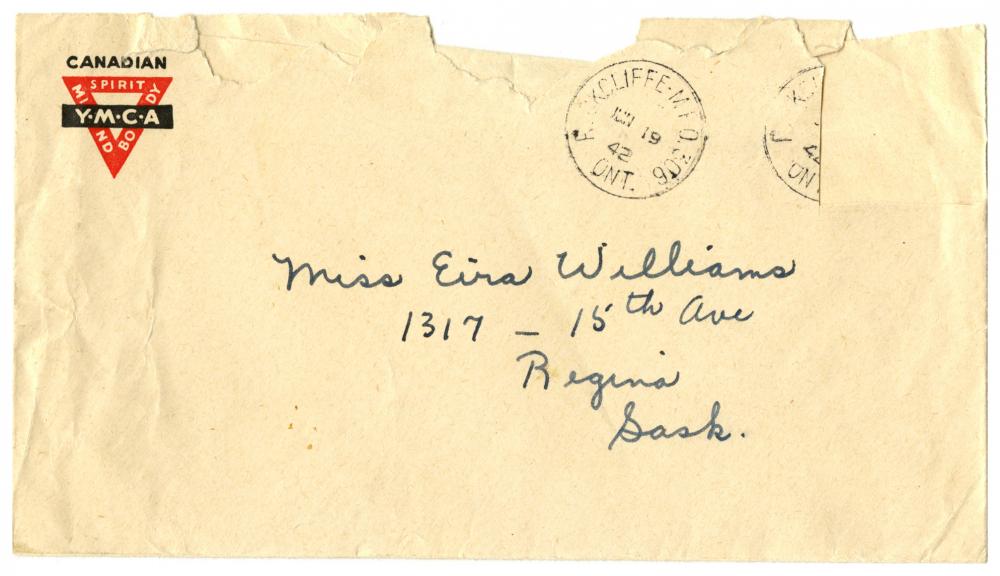 CANADIAN
SPIRIT
MIND
BODY
Y·M·C·A
ROCKCLIFFE-M.P.O. 303
JUN 19
42
ONT.
42
ONT
Miss Eira Williams
1317 - 15th Ave
Regina
Sask.